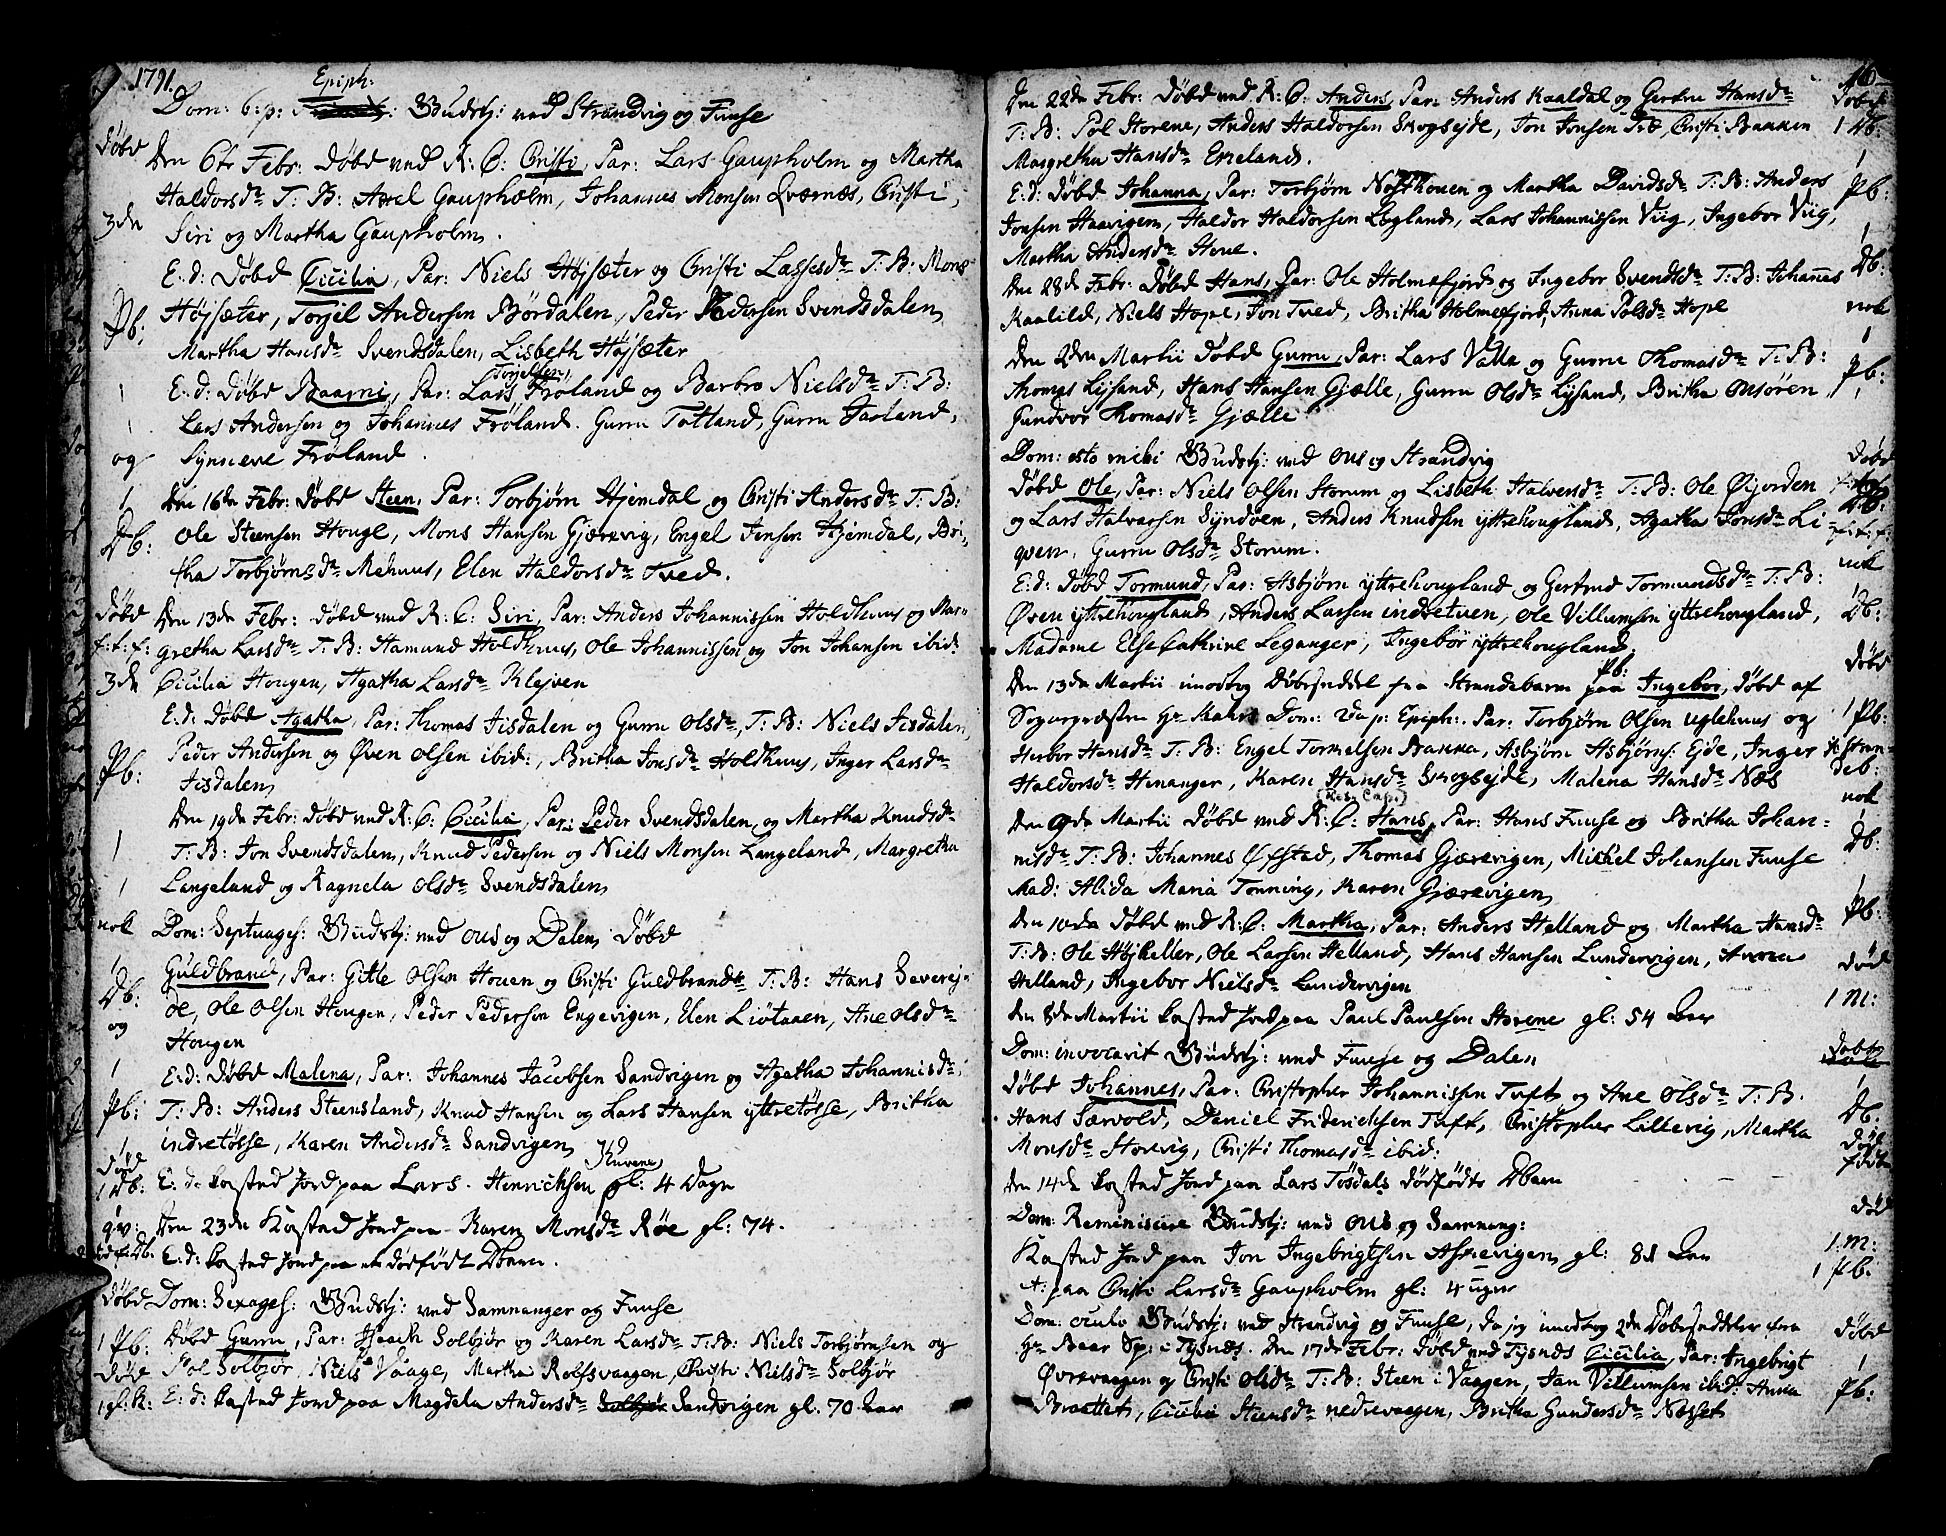 1791.
Epiph:
Dom: 6: p: Budstj: ved Strandvig og Fuuse
Døbd
den 6te Febr: døbd ved K: C: Cristi, Par: Lars Gaupholm og Martha
Haldorsdr T: B: Axel Gaupholm, Johannes Monsen Qværnæs, Cristi,
3de
Siri og Martha Gaupholm.
E: d: døbd Cicilia, Par: Niels Højsæter og Cristi Lassesdr T: B: Mons
Pb:
Højsæter, Torjil Andersen Bördalen, Peder Pedersen Svendsdalen,
Martha Hansdr Svendsdalen, Lisbeth Højsæter
Torjelsen
1
E: d: døbd Baarni, Par: Lars Fröland og Barbro Nielsdr T: B:
1
Lars Andersen og Johannes Fröland. Gurru Totland, Gurru Jarland,
og
Synneve Fröland.
1
den 16de Febr: døbd Steen, Par: Torbjørn Hjemdal og Cristi Andersdr T: B:
Db:
Ole Steensen Hougl, Mons Hansen Gjærevig, Engel Jensen Hjemdal, Bri,
tha Torbjørnsdr Mehuus, Elen Haldorsdr Tved.
Døbd
den 13de Febr: døbd ved K: C: Siri, Par: Anders Johannissen Holdhuus og Mar-
f: f: f:
gretha Larsdr T: B: Hamund Holdhuus, Ole Johannissen og Jon Johansen ibid:
3de
Cicilia Hougen, Agatha Larsdr Klejven
E: d: døbd Agatha, Par: Thomas Jisdalen og Gurru Olsdr, T: B: Niels Jisdalen,
Pb:
Peder Andersen og Øven Olsen ibid:, Britha Jonsdr Holdhuus, Inger Larsdr
Jisdalen,
den 19de Febr: døbd ved K: C: Cicilia, Par: Peder Svendsdalen og Martha Knudsdr
1
T: B: Jon Svendsdalen, Knud Pedersen og Niels Monsen Langeland, Margretha
1
Langeland og Ragnela Olsdr Svendsdalen,
nok
Dom: Septuages: Budstj: ved Ous og Dalen, døbd
1
Guldbrand, Par: Gitle Olsen Houen og Cristi Guldbrandsdr T: B: Hans Severej-
Db:
de, Ole Olsen Hougen, Peder Pedersen Engevigen, Elen Liötaaen, Ane Olsdr
og
Hougen
1
E: d: døbd Malena, Par: Johannes Jacobsen Sandvigen og Agatha Johannisdr
Pb:
T: B: Anders Steensland, Knud Hansen og Lars Hansen yttretøsse, Britha
1
indretøsse, Karen Andersdr Sandvigen,
død
1 Db:
E: d: kastad Jord paa Lars Henrichsen gl: 4 Dage
qv:
den 23de Kastad Jord paa Karen Monsdr Røe gl: 74.
E: d: kastad Jord paa et dødfödt Dbarn.
Døbd
Dom: Sexages: Budstj: ved Samnanger og Fuuse
1 Pb:
Døbd Gurru, Par: Isaach Solbjør og Karen Larsdr T: B: Niels Torbjørnsen og
død
Pol Solbjør, Niels Vaage, Martha Rolfsvaagen, Christi Nielsdr Solbjør
1 gl: K:
E: d: kastad Jord paa Magdela Andersdr Solbjør Sandvigen gl. 70 aar
den 22de Febr: døbd ved K: C: Anders, Par: Anders Kaaldal og Gertru Hansdr
døbd
T: B: Pol Storene, Anders Haldorsen Skogsejde, Jon Jonsen Træ, Cristi Bakken
1 Db:
Margretha Hansdr Eneland.
1
E: d: døbd Johanna, Par: Torbjørn Nordthouen og Martha Davidsdr T: B: Anders
Pb:
Jonsen Haavigen, Haldor Haldorsen Legland, Lars Johannissen Viig, Ingebor Viig,
1
Martha Andersdr Hove.
Db:
den 28de Febr: døbd Hans, Par: Ole Holmefjord og Ingebor Svendsdr T: B: Johannes
nok
Kaalild, Niels Hope, Jon Tved, Britha Holmefjord, Anna Polsdr Hope
1
den 2den Martii døbd Gurru, Par: Lars Valla og Gurru Thomasdr T: B:
Pb:
Thomas Lysand, Hans Hansen Gjælle, Gurru Olsdr Lysand, Britha Onsøren,
Gundvor Thomasdr Gjælle
Dom: esto mihi Budstj: ved Ous og Strandvig
Døbd
Døbd Ole, Par: Niels Olsen Storum og Lisbeth Halversdr T: B: Ole Øijorden
Db:
og Lars Halvorsen Syndven, Anders Knudsen yttrehougland, Agatha Jonsdr Li-
f: f: f:
qven, Gurru Olsdr Storum.
nok
E: d: døbd Tormund, Par: Asbjørn yttrehougland og Gertrud Tormundsdr T: B:
1
Øven yttrehougland, Anders Larsen indretuen, Ole Villumsen yttrehougland,
Db:
Madame Else Cathrine Leganger, Ingebør yttrehougland.
Pb:
døbd
den 13de Martii imodtog Døbeseddel fra Strandebarm paa Ingebor, døbd af
1 Pb:
Sogneprästen Hr Kahrs Dom: 2da p: Epiph:. Par: Torbjørn Olsen Uglehuus og
Herbor Hansdr T: B: Engel Tormelsen Bakka, Asbjørn Asbjørns: Ejde, Inger
i stran-
deb:
Haldorsdr Henanger, Karen Hansdr Skogsejde, Malena Hansdr Næs
nok
den 9de Martii døbd ved K: C: Hans, Par: Hans Fuuse og Britha Johan-
1
Db:
nisdr T: B: Johannes Øfstad, Thomas Gjærevigen, Michel Johansen Fuuse
Mad: Alida Maria Tonning, Karen Gjærevigen,
1
den 10de døbd ved K: C: Martha, Par: Anders Helland og Martha Hansdr
Pb:
T: B: Ole Höjkeller, Ole Larsen Helland, Hans Hansen Lundervigen, Anna
død
Helland, Ingebor Nielsdr Lundervigen
1 M:
den 8de Martii kastad Jord paa Paul Paulsen Storene gl: 54 Aar
Dom: invocavit Budstj: ved Fuuse og Dalen
Døbte
Døbd Johannes, Par: Christopher Johannissen Tuft og Ane Olsdr T: B.
1
Hans Særvold, Daniel Friderichsen Tuft, Christopher Lillevig, Martha
Db:
Monsdr Storvig, Cristi Thomasdr ibid:
død
födt
den 14de kastad Jord paa Lars Tøsdals dödfödte Dbarn
Dom: Reminiscere Budstj: ved Ous og Samnang:
død
Kastad Jord paa Jon Ingebrigtsen Askevigen, gl: 81 Aar
1. M:
1 Pb:
it: paa Cristi Larsdr Gaupholm gl: 4 uger
Dom: oculi Budstj: ved Strandvig og Fuuse, da jeg imodtog 2de Døbesedler fra
døbd
Hr Baar Sp: i Tysnæs. Den 17de Febr: døbd ved Tysnæs Cicilia, Par: Ingebrigt
1
Øvrevaagen og Cristi Olsdr T: B: Steen i Vaagen, Jan Villumsen ibid: Anna
Pb:
Braattet, Cicilia Steensdr nedrevaagen, Britha Gundersdr Nesset